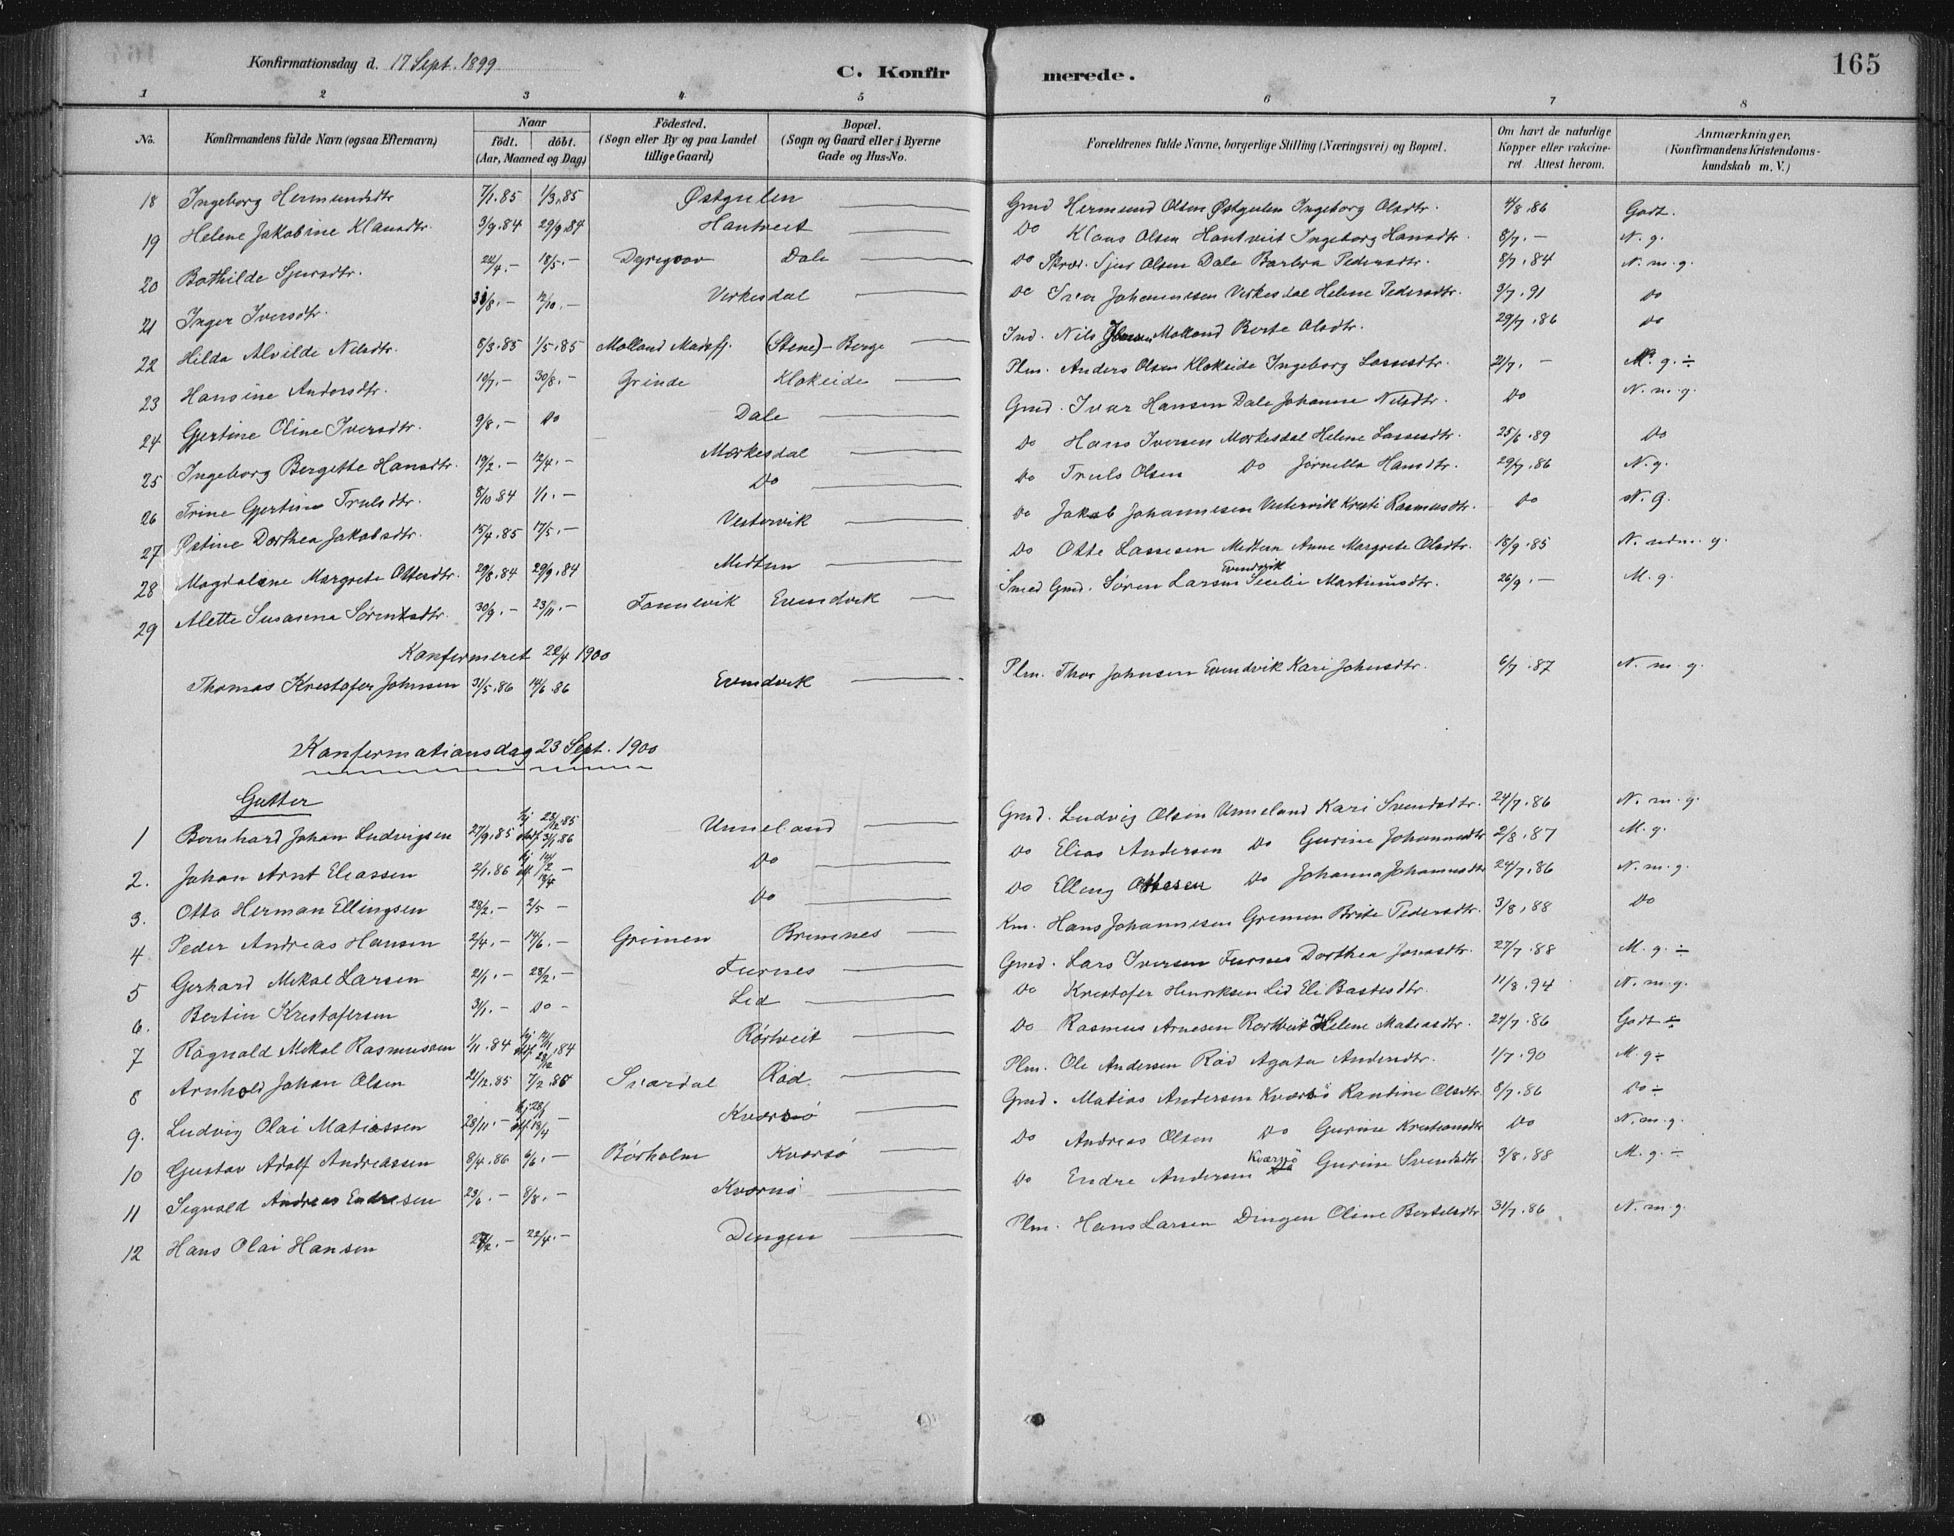 165
Konfirmationsdag d. 17 Sept. 1899
C. Konfirmerede.
1 2 3 4 5 6 7 8
No. Konfirmandens fulde Navn (ogsaa Efternavn) Naar födt. döbt. (Aar, Maaned og Dag) Födested. (Sogn eller By og paa Landet tillige Gaard) Bopæl. (Sogn og Gaard eller i Byerne Gade og Hus-No. Forældrenes fulde Navne, borgerlige Stilling (Næringsvei) og Bopæl. Om havt de naturlige Kopper eller vakcineret. Attest herom. Anmærkninger, (Konfirmandens Kristendomskundskab m. V.)
18 Ingeborg Hermundsdtr 7/1.85 1/3.85 Østgulen Gmd Hermund Olsen Østgulen Ingeborg Olsdtr. 4/8.86 Godt.
19 Helene Jakobine Klausdtr. 3/9.84 29/9.84 Hantveit Do Klaus Olsen Hantveit Ingeborg Hansdtr. 8/7.- N. g.
20 Bothilde Sjursdtr. 22/4.- 18/5.- Dyregrov Dale Do Skræd. Sjur Olsen Dale Barbra Pedersdtr. 8/7.84 N. m. g.
21 Inger Iversdtr. 31/8.- 12/10.- Virkesdal Do Iver Johannesen Virkesdal Helene Pedersdtr. 9/7.91 Do
22 Hilda Alvilde Nilsdtr. 8/3.85 1/5.85 Molland Masfj. (Stene) - Berge Ind. Nils Molland Berte Olsdtr. 29/7.86 Do
23 Hansine Andersdtr. 19/7.- 30/8.- Grinde Klokeide Plm. Anders Olsen Klokeide Ingeborg Lassesdtr. 2/7.- M. g. ÷
24 Gjertine Oline Iversdtr. 9/8.- Do Dale Gmd. Ivar Hansen Dale Johanne Nilsdtr. Do N. m. g
25 Ingeborg Bergette Hansdtr. 19/2.- 12/4.- Mørkesdal Do Hans Iversen Mørkesdal Helene Lassesdtr. 25/6.89 Do
26 Trine Gjertine Trulsdtr. 8/10.84 1/1.- Do Do Truls Olsen Do Jørnella Hansdtr. 29/7.86 N. g.
27 Østine Dorthea Jakobsdtr. 15/4.85 17/5.- Vestervik Do Jakob Johannesen Vestervik Kristi Rasmusdtr. Do N. g
28 Magdalene Margrete Ottesdtr. 29/8.84 29/9.84 Midtun Do Otte Lassesen Midtun Anne Margrete Olsdtr. 18/9.85 N. udm. g.
29 Alette Susanna Sørensdtr. 30/9.- 23/11.- Fonnevik Evindvik Smed Gmd. Søren Larsen Evindvik Sicilie Martinusdtr. 26/9.- M. g.
Konfirmeret 22/4 1900
Thomas Kristofer Johnsen 31/5.86 14/6.86 Evindvik Plm. Thor Johnsen Evindvik Kari Johnsdtr. 6/7.87 N. m. g.
Konfirmationsdag 23 Sept. 1900
Gutter
1 Bernhard Johan Ludvigsen 27/9.85 hj 23/12.85 stadf. 3/1.86 Unneland Gmd. Ludvig Olsen Unneland Kari Svendsdtr. 24/7.86 N. m. g.
2. Johan Arnt Eliassen 2/1.86 hj 14/2 stf. 18/4 - Do Do Elias Andersen Do Gurine Johannesdtr 2/8.87 M. g.
3. Otto Herman Ellingsen 28/2.- 2/5 - Do Do Elling Ottesen Do Johanna Johannesdtr 24/7.86 N. m. g.
4 Peder Andreas Hansen 2/4.- 14/6.- Grimen Brimnes Km. Hans Johannesen Grimen Brite Pedersdtr. 3/8.88 Do
5 Gerhard Mikal Larsen 2/1.- 28/2.- Furnes Gmd. Lars Iversen Furnes Dorthea Jonasdtr. 27/7.88 M. g. ÷
6. Bertin Kristofersen 3/1.- Do - Lid Do Kristofer Henriksen Lid Eli Bastesdtr. 11/8.94 N. m. g.
7 Ragnald Mikal Rasmussen 1/11.84 hj 12/11 stdf. 28/12.84 Rørtveit Do Rasmus Arnesen Rørtveit Helene Matiasdtr. 24/7.86 Godt ÷
8 Arnhold Johan Olsen 21/12.85 7/2.86 Sværdal Rød. Plm. Ole Andersen Rød Agata Andersdtr. 1/7.90 M. g ÷
9. Ludvig Olai Matiassen 28/11.- hj 28/1 stf. 18/4 - Kversø Gmd. Matias Andersen Kversø Rantine Olsdtr. 8/7.86 Do ÷
10 Gustav Adolf Andreassen 8/4.86 6/6.- Børholm Kversø Do Andreas Olsen Do Gurine Kristiansdtr Do N. m. g.
11 Sigvald Andreas Endresen 23/6.- 8/8.- Kversø Do Endre Andersen Kversø Gurine Svendsdtr. 3/8.88 M. g. -
12 Hans Olai Hansen 27/2.- 22/4.- Dingen Plm. Hans Larsen Dingen Oline Bertelsdtr. 31/7.86 N. m. g.